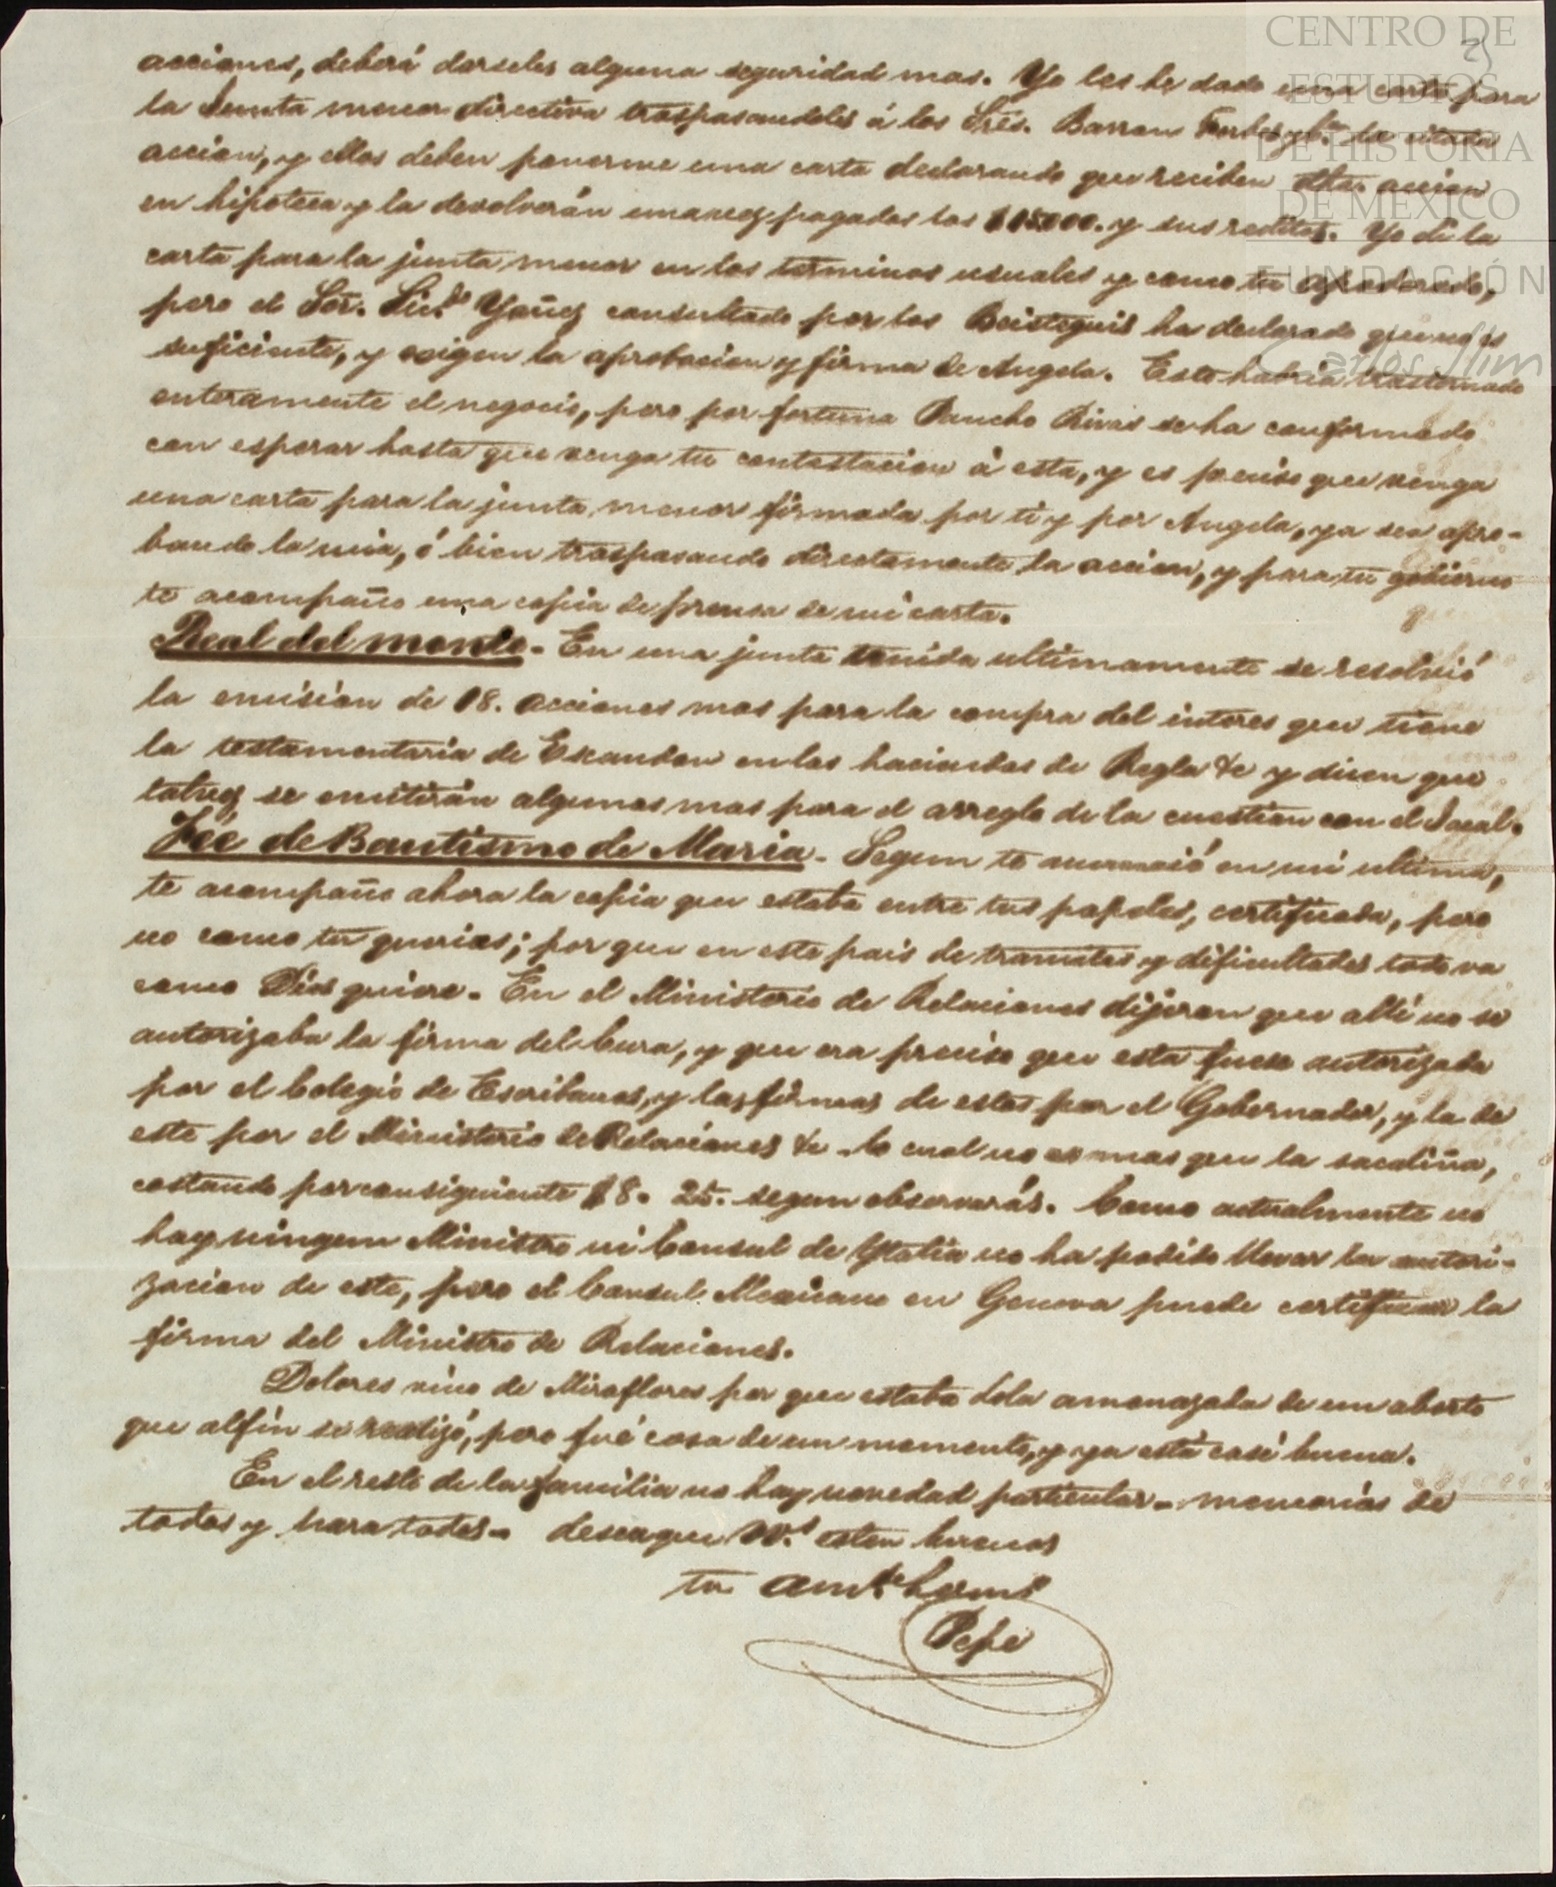 CENTRO DE
ESTUDIOS
DE HISTORIA
DE MÉXICO
FUNDACIÓN
Carlos Slim
acciones, deberá darseles alguna seguridad mas. Yo les he dado una carta para
la Junta menor directiva traspasandoles á los Sres. Barron Forbes y Ca. la citada
accion, y ellos deben ponerme una carta declarando que reciben dha. accion
en hipoteca y la devolverán una vez pagados los $15000. y sus reditos. Yo di la
carta para la junta menor en los terminos usuales y como tu apoderado,
pero el Sor. Licdo. Yañez consultado por los Beisteguis ha declarado que no es
suficiente, y exigen la aprobacion y firma de Angela. Esto habria trastornado
enteramente el negocio, pero por fortuna Pancho Rivas se ha conformado
con esperar hasta que venga tu contestacion á esta, y es preciso que venga
una carta para la junta menor firmada por ti y por Angela, ya sea apro-
bando la mia, ó bien traspasando directamente la accion, y para tu gobierno
te acompaño una copia de prensa de mi carta.
Real del monte. En una junta tenida ultimamente se resolvió
la emisión de 18. acciones mas para la compra del interes que tiene
la testamentaria de Escandon en las haciendas de Regla &c y dicen que
talvez se emitirán algunas mas para el arreglo de la cuestion con el Jacal.
Fée de Bautismo de Maria. Segun te anuncié en mi ultima,
te acompaño ahora la copia que estaba entre tus papeles, certificada, pero
no como tu querias; por que en este pais de tramites y dificultades todo va
como Dios quiere. En el Ministerio de Relaciones dijeron que allí no se
autorizaba la firma del Cura, y que era preciso que esta fuese autorizada
por el Colegio de Escribanos, y las firmas de estos por el Gobernador, y la de
este por el Ministerio de Relaciones &c. lo cual no es mas que la sacaliña,
costando por consiguiente $8. 25. segun observarás. Como actualmente no
hay ningun Ministro ni Consul de Ytalia no ha podido llevar la autori-
zacion de este, pero el Consul Mexicano en Genova puede certificar la
firma del Ministro de Relaciones.
Dolores vino de Miraflores por que estaba Lola amenazada de un aborto
que alfin se realizó, pero fué cosa de un momento, y ya está casi buena.
En el resto de la familia no hay novedad particular. memorias de
todos y para todos. desea que VV.s esten buenos
tu amte. herm.o
Pepe